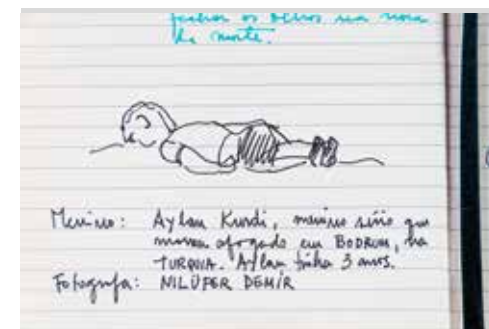 fechar os olhos na hora
da morte.
Menino: Aylan Kurdi, menino sírio que
morreu afogado em BODRUM, na
TURQUIA. Aylan tinha 3 anos.
Fotógrafa: NILÜFER DEMİR